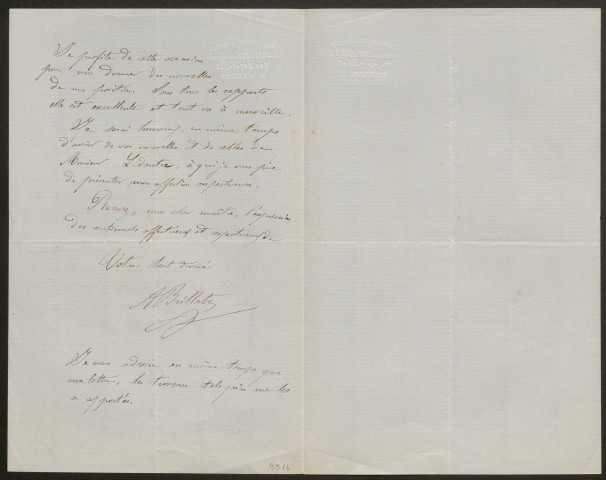 Je profite de cette occasion
pour vous donner des nouvelles
de ma position. Sous tous les rapports
elle est excellente et tout va à merveille.
Je serai heureux, en même temps
d'avoir de vos nouvelles et de celles de
Monsieur à qui je vous prie
de présenter mon affection respectueuse.
Recevez, mon cher maître, l'expression
des sentiments affectueux et respectueux de
Votre tout dévoué
Je vous adresse en même temps que
ma lettre, les tels qu'on me les
a apportés.